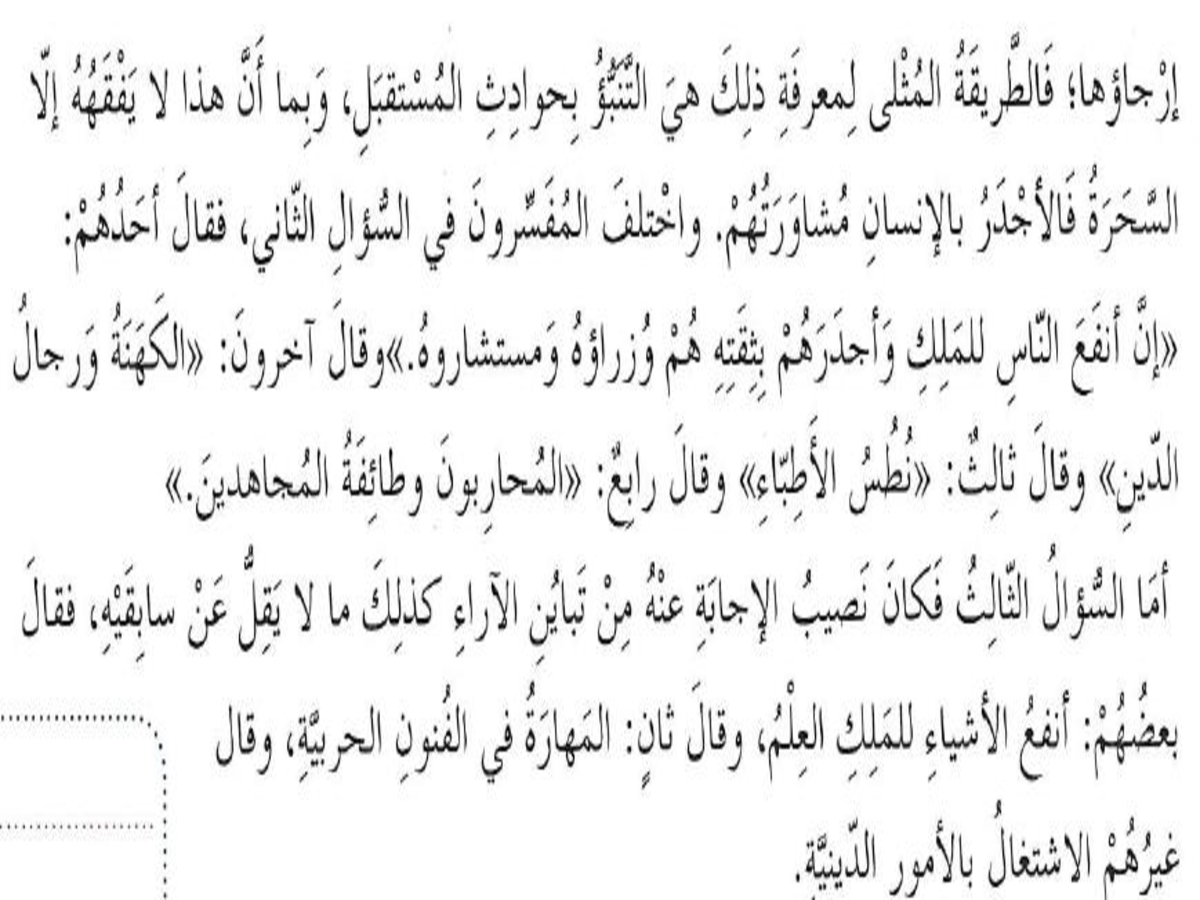 إرْجاؤها؛ فَالطَّريقَةُ المُثْلى لِمعرفَةِ ذلِكَ هيَ التَّنَبُّؤُ بِحوادِثِ المُسْتقبَلِ، وَبِما أَنَّ هذا لا يَفْقَهُهُ إلّا
السَّحَرَةُ فَالأجْدَرُ بالإنسانِ مُشاوَرَتُهُمْ. واخْتلفَ المُفَسِّرونَ في السُّؤالِ الثّاني، فقالَ أحَدُهُمْ:
«إنَّ أنفَعَ النّاسِ للمَلِكِ وَأجدَرَهُمْ بِثِقَتِهِ هُمْ وُزراؤهُ وَمستشاروهُ.»وقالَ آخرونَ: «الكَهَنَةُ وَرجالُ
الدّينِ» وقالَ ثالِثٌ: «نُطُسُ الأَطِبّاءِ» وقالَ رابِعٌ: «المُحارِبونَ وطائِفَةُ المُجاهدينَ.»
أمَا السُّؤالُ الثّالِثُ فَكانَ نَصيبُ الإجابَةِ عنْهُ مِنْ تَبايُنِ الآراءِ كذلِكَ ما لا يَقِلُّ عَنْ سابِقَيْهِ، فقالَ
بعضُهُمْ: أنفعُ الأشياءِ للمَلِكِ العِلْمُ، وقالَ ثانٍ: المَهارَةُ في الفُنونِ الحربيَّةِ، وقال
غيرُهُمْ الاشتغالُ بالأمور الدّينيَّةِ.